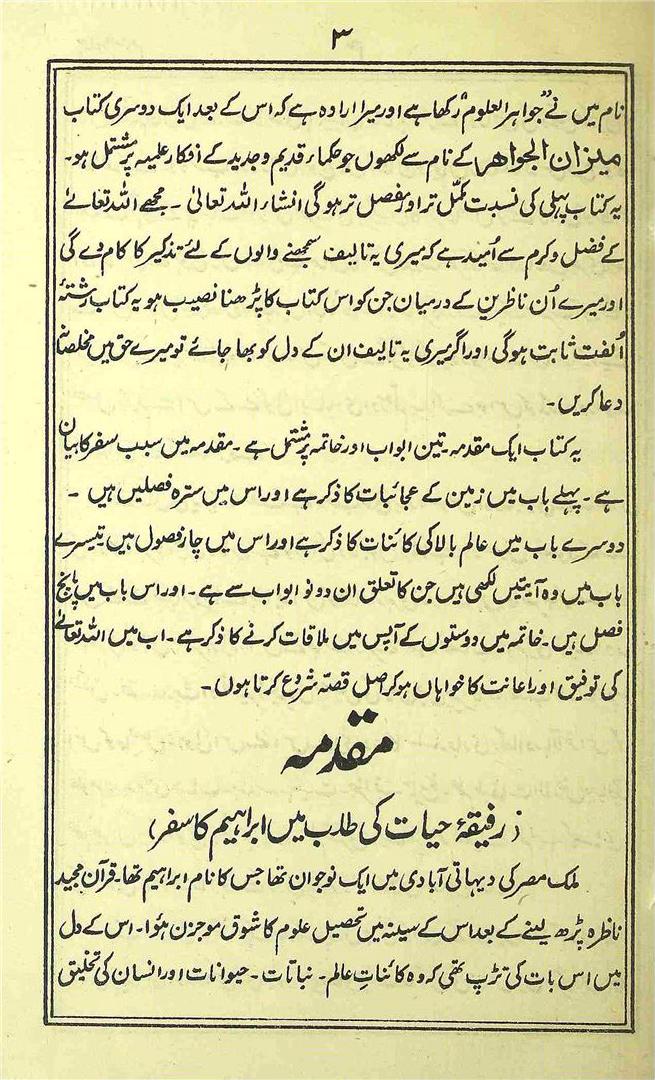 ۳
نام میں نے "جواہر العلوم" رکھا ہے اور میرا ارادہ ہے کہ اس کے بعد ایک دوسری کتاب
میزان الجواھر کے نام سے لکھوں جو حکماء قدیم و جدید کے افکار علمیہ پر مشتمل ہو۔
یہ کتاب پہلی کی نسبت مکمّل تر اور مفصل تر ہوگی انشاء اللہ تعالیٰ ۔ مجھے اللہ تعالےٰ
کے فضل و کرم سے اُمید ہے کہ میری یہ تالیف سمجھنے والوں کے لئے تذکیر کا کام دے گی
اور میرے اُن ناظرین کے درمیان جن کو اس کتاب کا پڑھنا نصیب ہو یہ کتاب رشتۂ
اُلفت ثابت ہوگی اور اگر میری یہ تالیف ان کے دل کو بھا جائے تو میرے حق میں مخلصانہ
دعا کریں۔
یہ کتاب ایک مقدمہ۔ تین ابواب اور خاتمہ پر مشتمل ہے ۔ مقدمہ میں سبب سفر کا بیان
ہے ۔ پہلے باب میں زمین کے عجائبات کا ذکر ہے اور اس میں سترہ فصلیں ہیں ۔
دوسرے باب میں عالم بالا کی کائنات کا ذکر ہے اور اس میں چار فصول ہیں۔ تیسرے
باب میں وہ آیتیں لکھی ہیں جن کا تعلق ان دونو ابواب سے ہے ۔ اور اس باب میں پانچ
فصل ہیں۔ خاتمہ میں دوستوں کے آپس میں ملاقات کرنے کا ذکر ہے ۔ اب میں اللہ تعالےٰ
کی توفیق اور اعانت کا خواہاں ہو کر اصل قصّہ شروع کرتا ہوں۔
مقدمہ
(رفیقۂ حیات کی طلب میں ابراہیم کا سفر)
ملک مصر کی دیہاتی آبادی میں ایک نوجوان تھا جس کا نام ابراہیم تھا۔ قرآن مجید
ناظرہ پڑھ لینے کے بعد اس کے سینہ میں تحصیل علوم کا شوق موجزن ہؤا۔ اس کے دل
میں اس بات کی تڑپ تھی کہ وہ کائناتِ عالم ۔ نباتات ۔ حیوانات اور انسان کی تخلیق